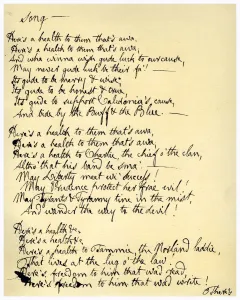 Song —
Here's a health to them that's awa,
Here's a health to them that's awa,
And wha winna wish gude luck to our cause,
May never gude luck be their fa'! —
Its gude to be merry & wise
Its gude to be honest & true
Its gude to support Caledonia's cause,
And bide by the Buff & the Blue —
Here's a health to them that's awa,
Here's a health to them that's awa,
Here's a health to Charlie, the chief o' the clan,
Altho' that his band be sma' —
May Liberty meet wi' success!
May Prudence protect her frae evil!
May Tyrants & Tyranny tine in the mist,
And wander the way to the devil!
Here's a health &c
Here's a health &c
Here's a health to Tammie, the Norland laddie,
That lives at the lug o' the law.
Here's freedom to him that wad read,
Here's freedom to him that wad write!